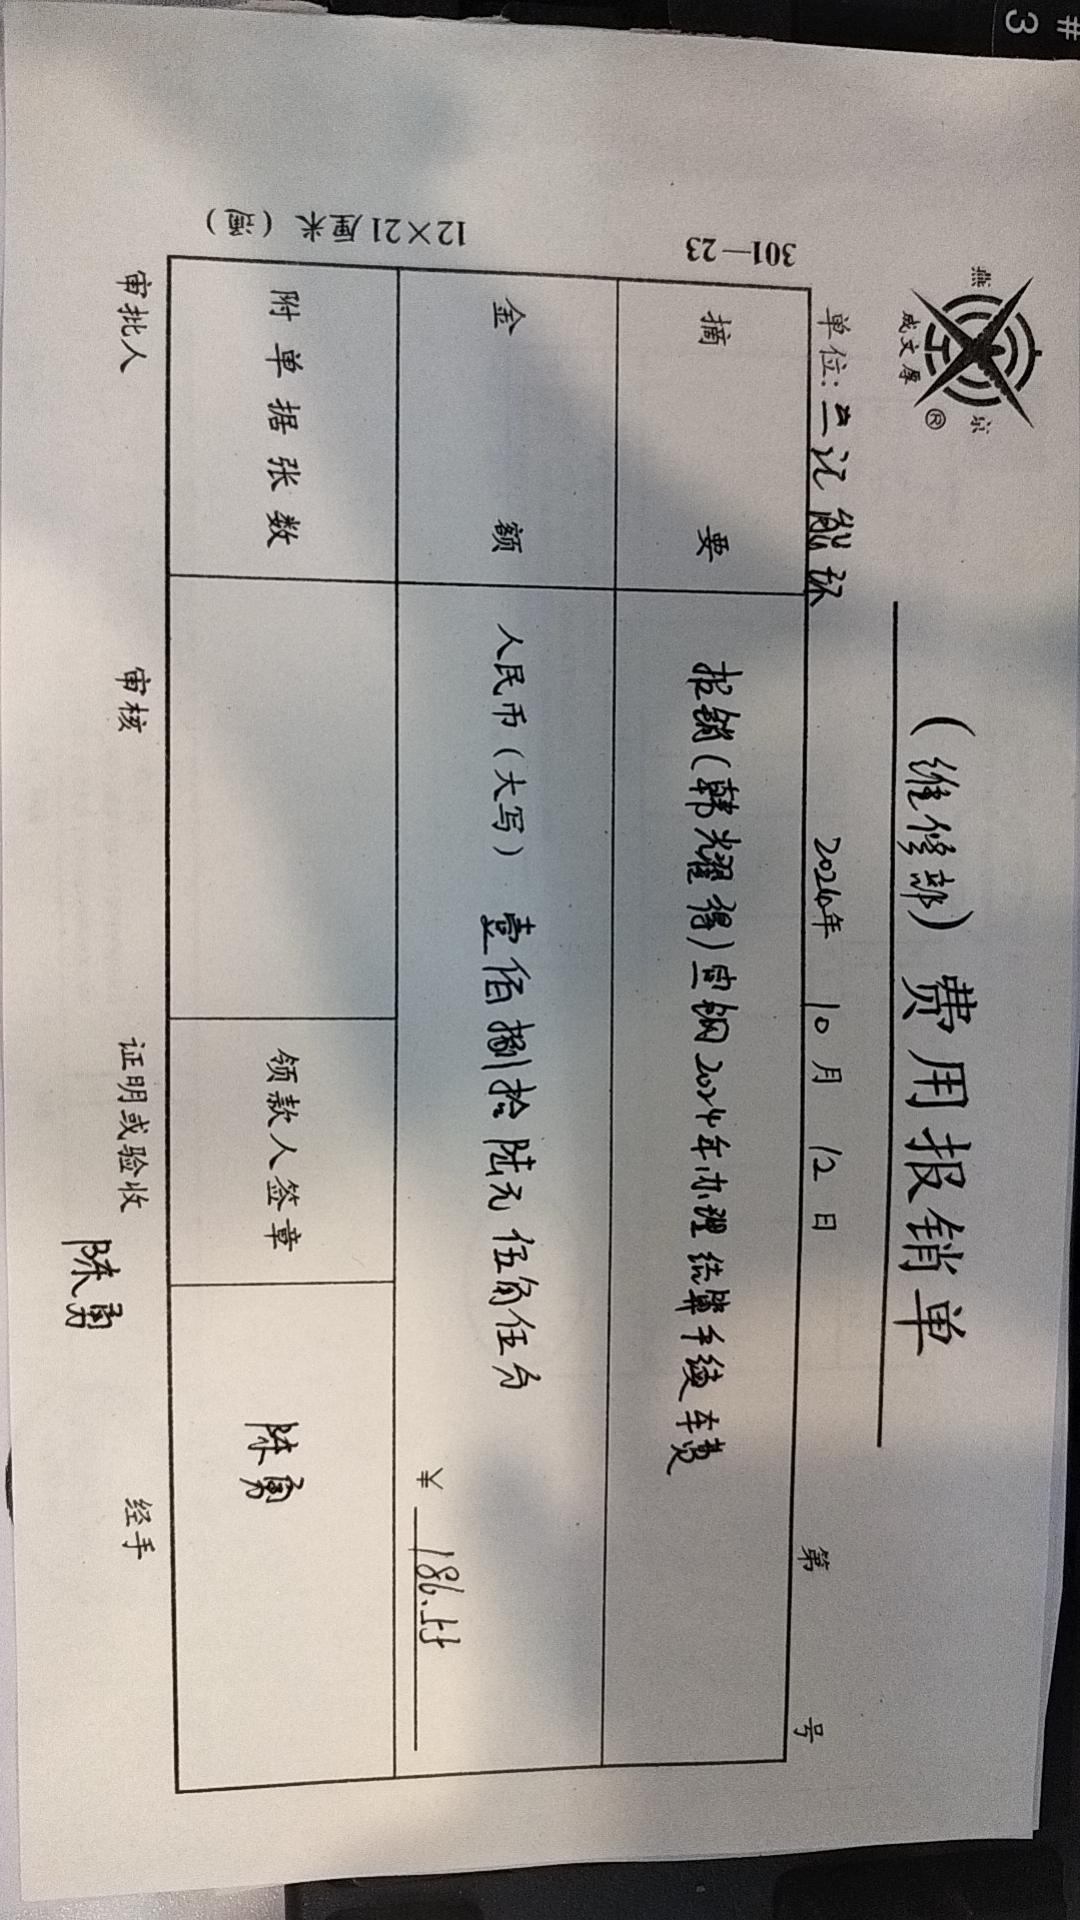 #
3
燕 京
成文厚 ®
(维修部) 费用报销单
单位: 三记能环 2024年 10月 12日 第 号
301—23
摘 要 报销(韩耀得)宣钢2024年办理结算手续车费
金 额 人民币(大写) 壹佰捌拾陆元伍角伍分
¥ 186.55
12×21厘米(通)
附单据张数 领款人签章 陈勇
审批人 审核 证明或验收 陈勇 经手